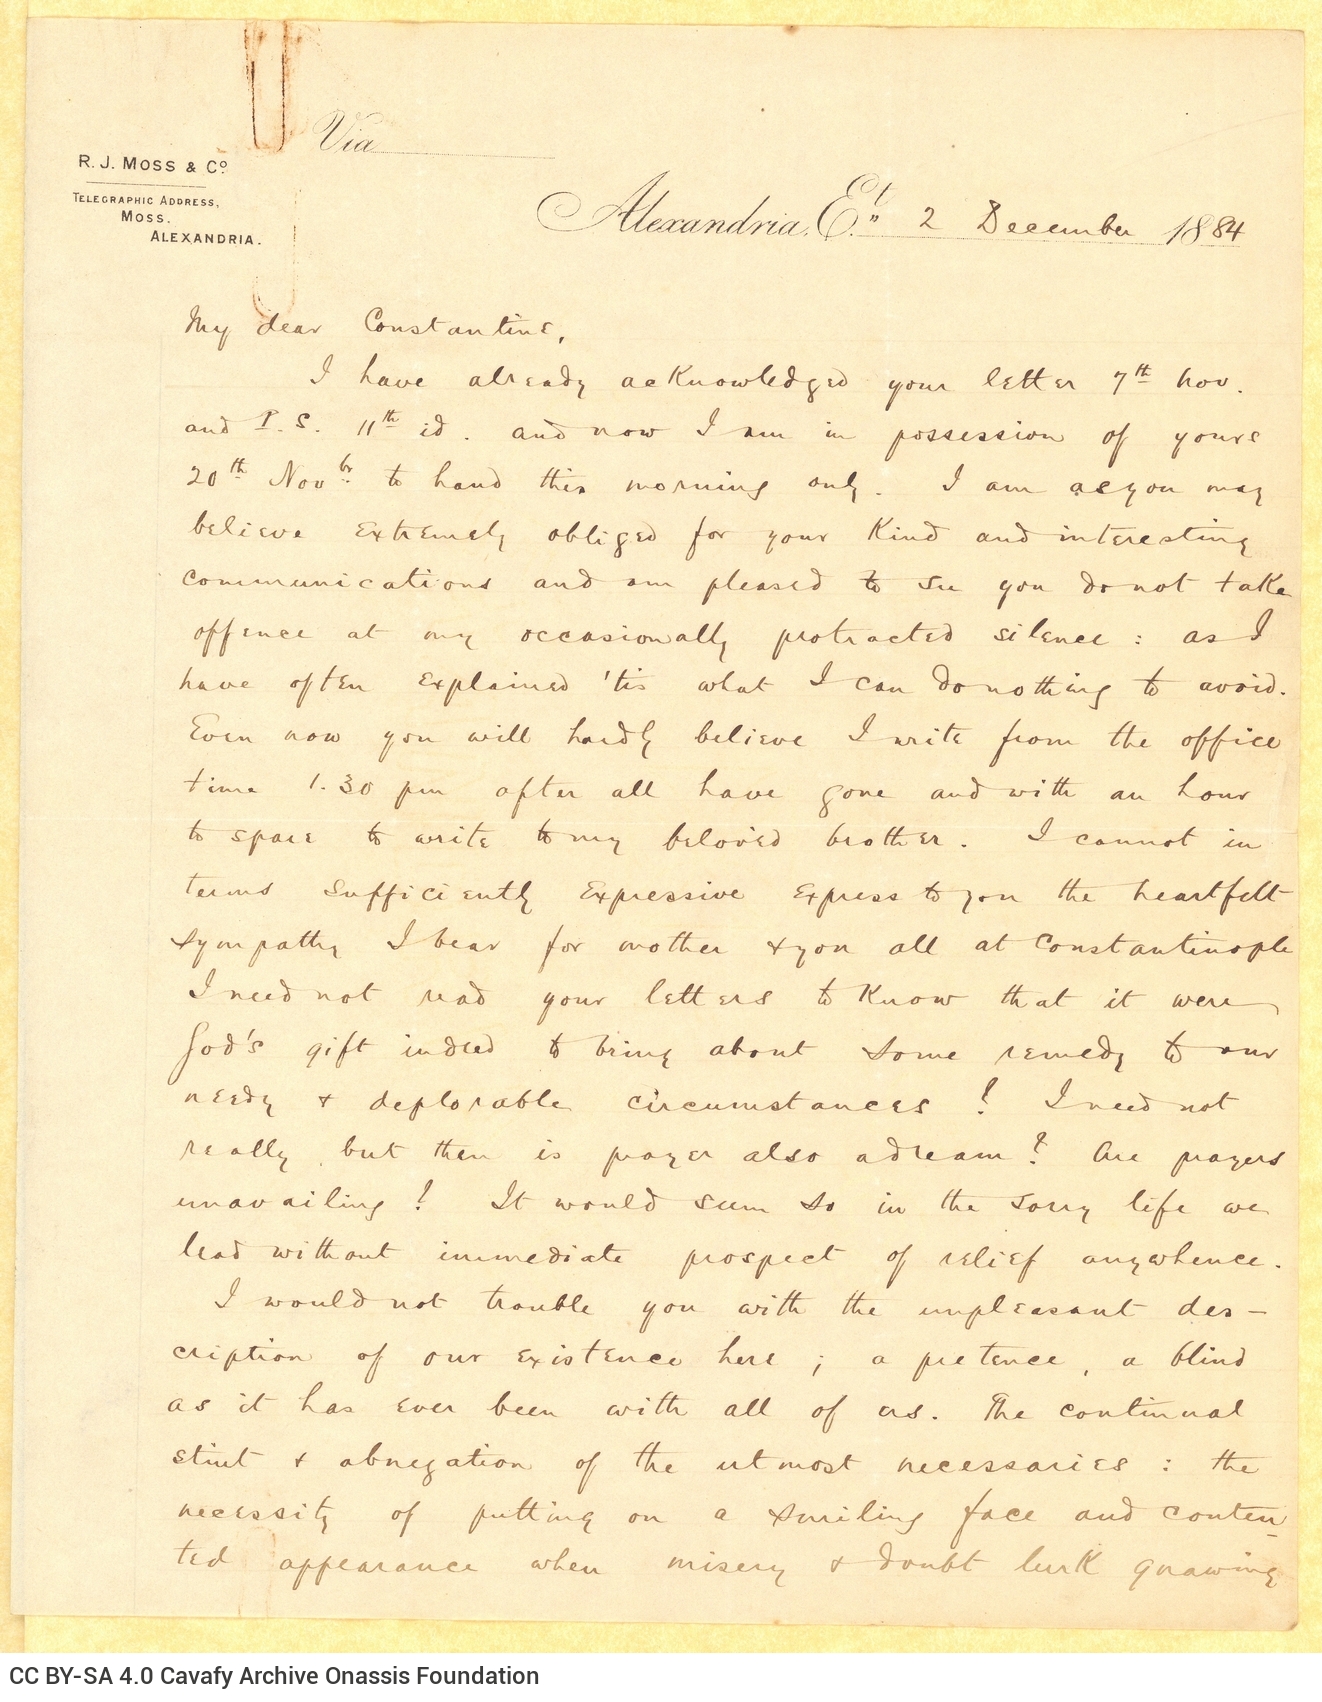 Via
R. J. MOSS & Co
TELEGRAPHIC ADDRESS,
MOSS.
ALEXANDRIA.
Alexandria, Et. 2 December 1884
My dear Constantine,
I have already acknowledged your letter 7th Nov.
and P.S. 11th id. and now I am in possession of yours
20th Novbr to hand this morning only. I am as you may
believe extremely obliged for your kind and interesting
communications and am pleased to see you do not take
offence at my occasionally protracted silence : as I
have often explained 'tis what I can do nothing to avoid.
Even now you will hardly believe I write from the office
time 1.30 pm after all have gone and with an hour
to spare to write to my beloved brother. I cannot in
terms sufficiently expressive express to you the heartfelt
sympathy I bear for mother & you all at Constantinople
I need not read your letters to know that it were
God's gift indeed to bring about some remedy to our
needy & deplorable circumstances ! I need not
really, but then is prayer also a dream ? Are prayers
unavailing ! It would seem so in the sorry life we
lead without immediate prospect of relief anywhence.
I would not trouble you with the unpleasant des-
cription of our existence here ; a pretence, a blind
as it has ever been with all of us. The continual
stint & abnegation of the utmost necessaries : the
necessity of putting on a smiling face and conten-
ted appearance when misery & doubt lurk gnawing
CC BY-SA 4.0 Cavafy Archive Onassis Foundation